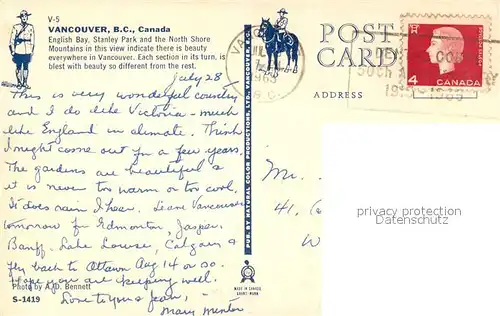 V-5
VANCOUVER, B.C., Canada
English Bay, Stanley Park and the North Shore
Mountains in this view indicate there is beauty
everywhere in Vancouver. Each section in its turn, is
blest with beauty so different from the rest.
July 28
This is very wonderful country
and I do like Victoria - much
like England in climate. Think
I might come out for a few years.
The gardens are beautiful &
it is never too warm or too cool.
It does rain I hear. Leave Vancouver
tomorrow for Edmonton, Jasper,
Banff, Lake Louise, Calgary &
fly back to Ottawa Aug 14 or so.
Hope you are keeping well.
Love to you & Jean,
Mary
Photo by A.D. Bennett
S-1419
PUB. BY NATURAL COLOR PRODUCTIONS, LTD., VANCOUVER, B.C.
MADE IN CANADA
POST
CARD
ADDRESS
B.C.
4
CANADA
POSTES POSTAGE
Mr.
41,
privacy protection
AnsichtskartenVersand.com